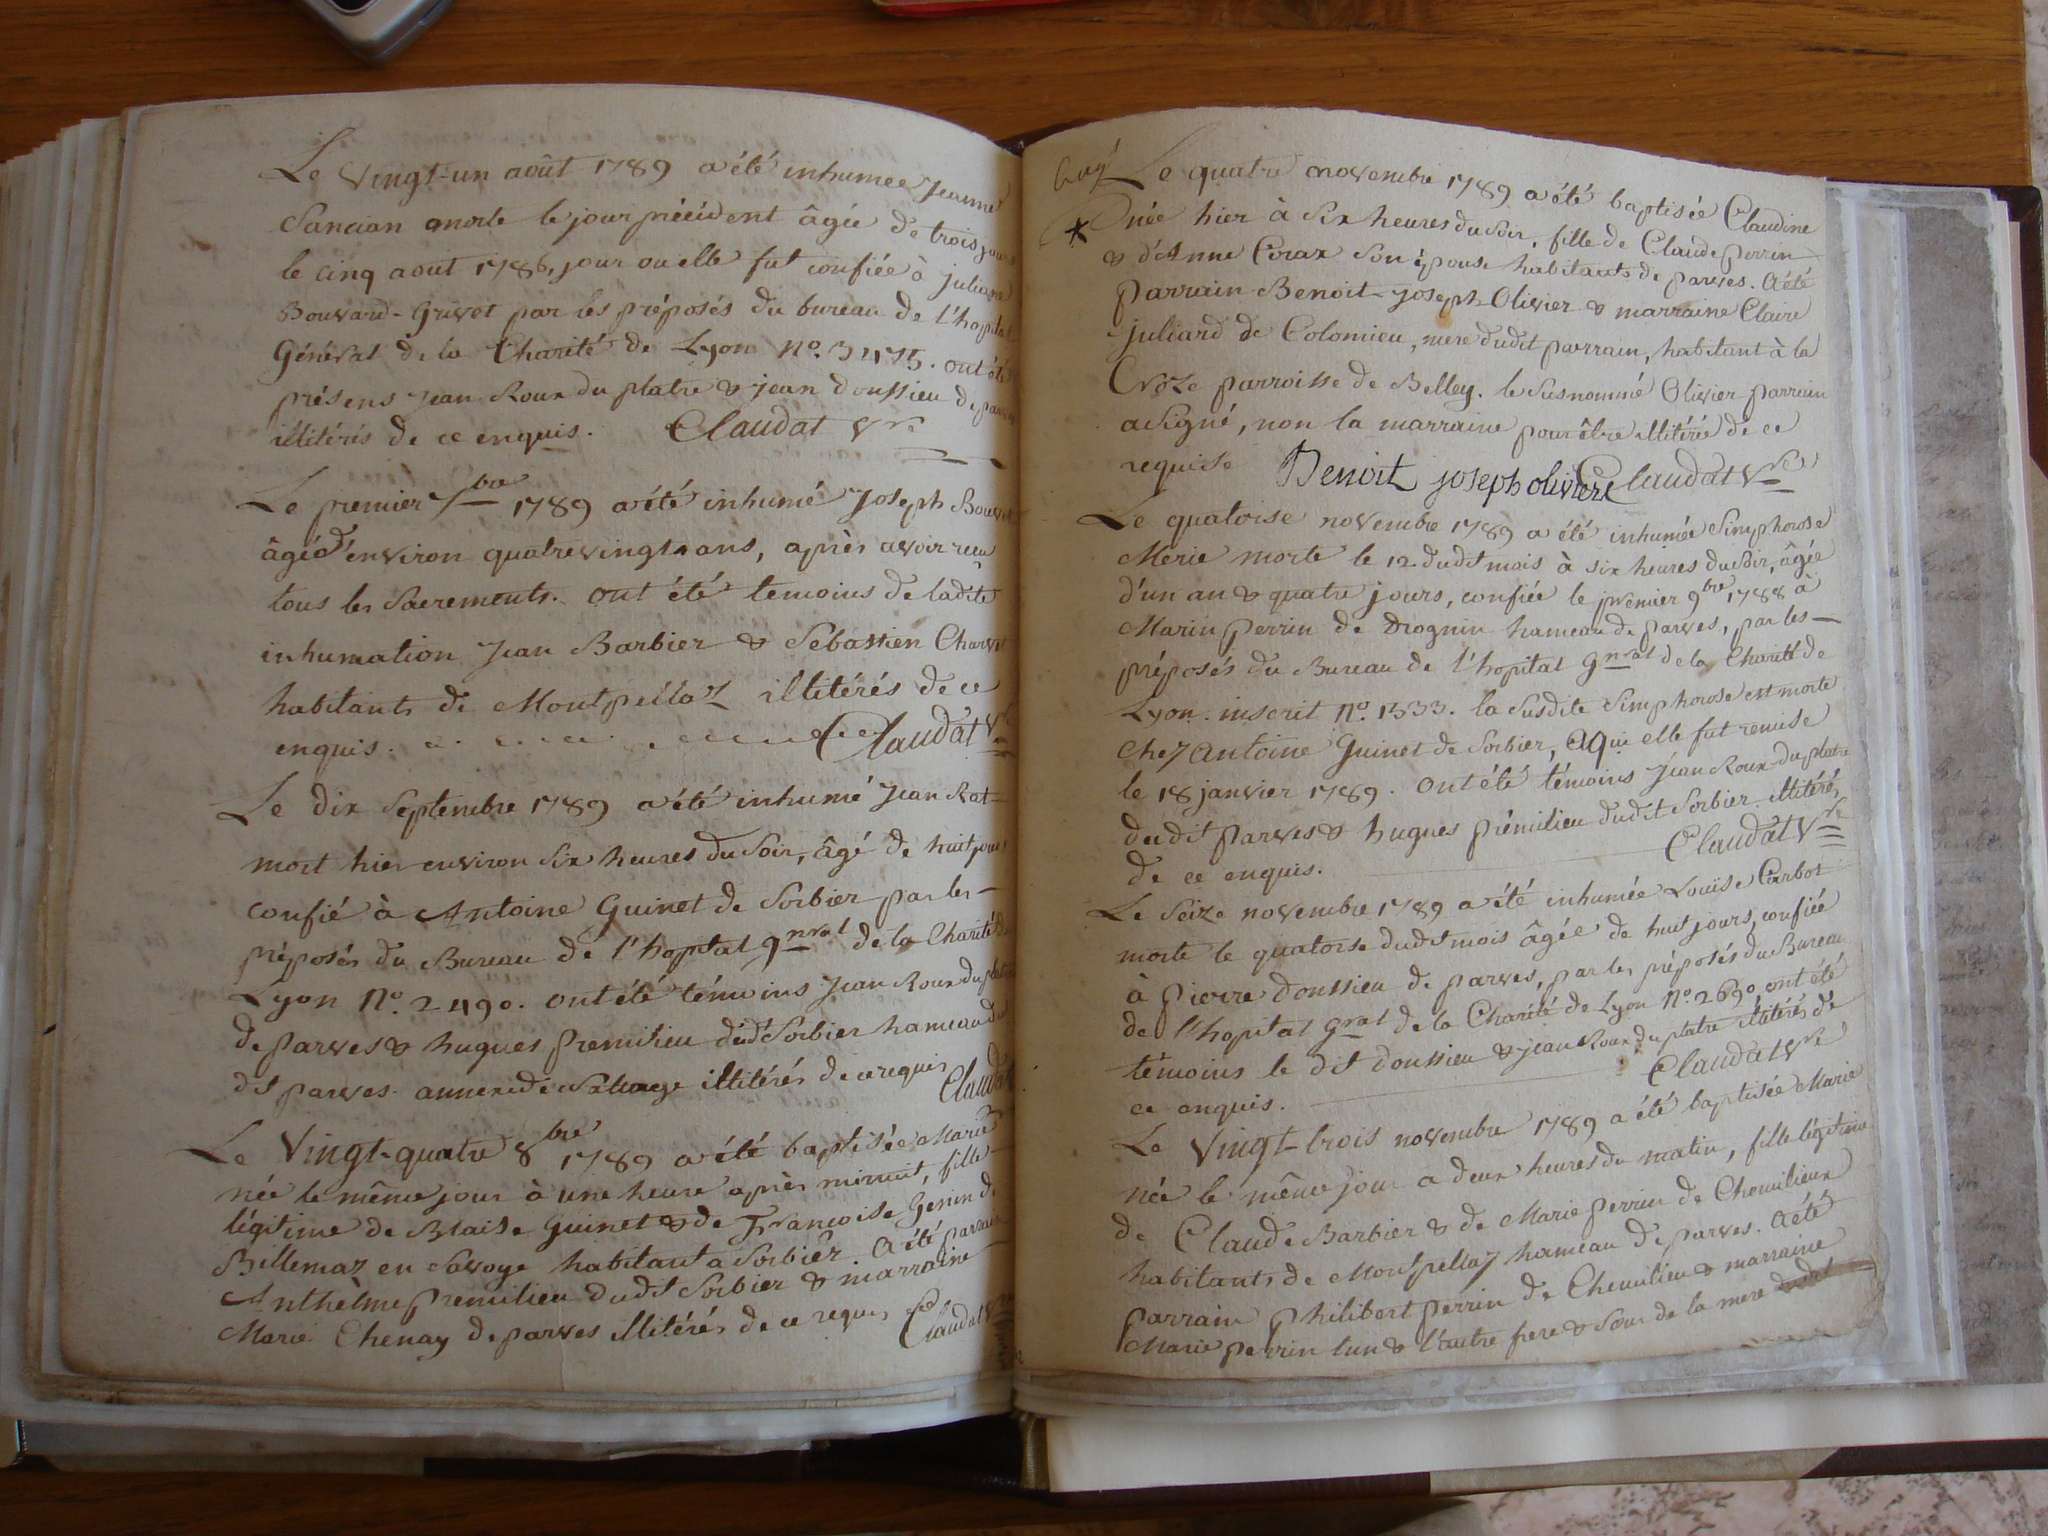 Le vingt-un août 1789 a été inhumée Jeanne
Sancian morte le jour précédent âgée de trois jours
le cinq aout 1786, jour ou elle fut confiée à juliane
Bouvard-Grivet par les préposés du bureau de l'hopital
Général de la Charité de Lyon No. ont été
présens Jean Roux du platre & jean doussieu de parves
illitérés de ce enquis. Claudat vre
Le premier 7bre 1789 a été inhumé Joseph Bouvet
âgé d'environ quatrevingt ans, après avoir reçu
tous les Sacrements. ont été temoins de ladite
inhumation Jean Barbier & Sébastien Charvet
habitants de Montpellaz illitérés de ce
enquis. Claudat vre
Le dix Septembre 1789 a été inhumé Jean Rat
mort hier environ six heures du Soir, âgé de huit jours
confié à Antoine Guinet de Sorbier par les
préposés du Bureau de l'hopital gnral de la Charité de
Lyon No. 2490. ont été témoins Jean Roux du platre
de parves & hugues premilieu dudt Sorbier hameau du
dt parves. annexe de illitérés de ce requis Claudat
Le Vingt-quatre 8bre 1789 a été baptisée Marie
née le même jour à une heure après minuit, fille
légitime de Blaise Guinet & de Françoise Genin de
Billemaz en Savoye habitant a Sorbier. A été parrain
Anthèlme premilieu dudt Sorbier & marraine
Marie Chenay de parves illitérés de ce requis Claudat vre
Le quatre novembre 1789 a été baptisée Claudine
* née hier à Six heures du Soir, fille de Claude perrin
& d'Anne Corax Son épouse habitants de parves. A été
parrain Benoit-joseph Olivier & marraine Claire
juliard de Colomieu, mere dudit parrain, habitant à la
Croze parroisse de Belley. le Susnommé Olivier parrain
a signé, non la marraine pour être illitérée de ce
requise Benoit joseph oliviere Claudat vre
Le quatorse novembre 1789 a été inhumée Simphorose
Merie morte le 12. dudt mois à six heures du Soir, âgée
d'un an & quatre jours, confiée le premier 9bre 1788 à
Marin perrin de Drognin hameau de parves, par les
préposés du Bureau de l'hopital gnral de la Charité de
Lyon. inscrit No. 1333. la Susdite Simphorose est morte
chez Antoine Guinet de Sorbier, a qui elle fut remise
le 18 janvier 1789. Ont été témoins Jean Roux du platre
dudit parves & hugues prémilieu dudit Sorbier illitérés
de ce enquis. Claudat vre
Le Seize novembre 1789 a été inhumée Louise Carbot
morte le quatorse dudt mois âgée de huit jours, confiée
à pierre doussieu de parves, par les préposés du Bureau
de l'hopital gral de la Charité de Lyon No. 2690 ont été
témoins le dit doussieu & jean Roux du platre illitérés de
ce enquis. Claudat vre
Le Vingt-trois novembre 1789 a été baptisée Marie
née le même jour a deux heures du matin, fille légitime
de Claude Barbier & de Marie perrin de Chemilieux
habitants de Montpellaz hameau de parves. A été
parrain philibert perrin de Chemilieu & marraine
Marie perrin l'un & l'autre frere & Soeur de la mere